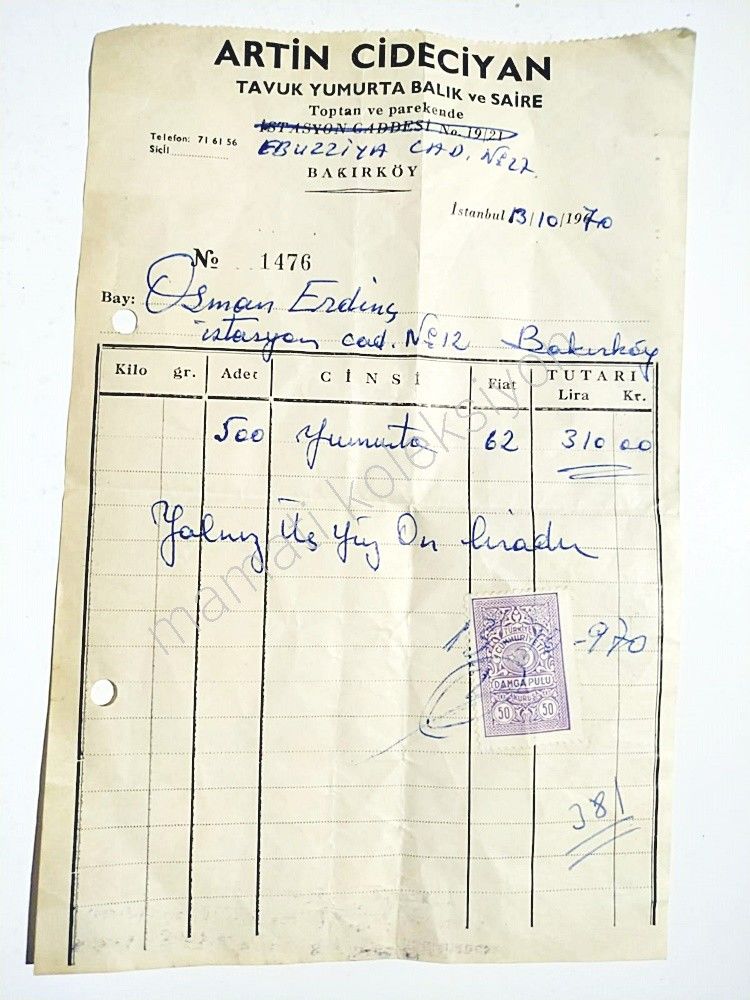 ARTİN CİDECİYAN
TAVUK YUMURTA BALIK ve SAİRE
Toptan ve parekende
İSTASYON CADDESİ No. 19/21
Telefon: 71 61 56
Sicil
EBUZZİYA CAD. No 27.
BAKIRKÖY
İstanbul 13/10/1970
No 1476
Bay: Osman Erdinç
istasyon cad. No 12 Bakırköy
Kilo gr. Adet CİNSİ Fiat TUTARI
Lira Kr.
500 Yumurta 62 310 00
Yalnız Üç Yüz On liradır
970
TÜRKİYE
CUMHURİYETİ
DAMGA PULU
KURUŞ
50 50
381
mamati koleksiyon